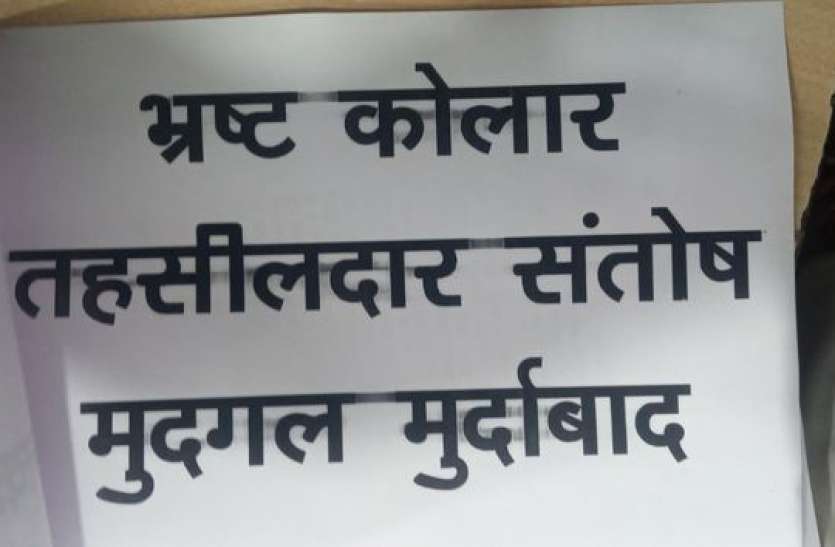 भ्रष्ट कोलार
तहसीलदार संतोष
मुदगल मुर्दाबाद